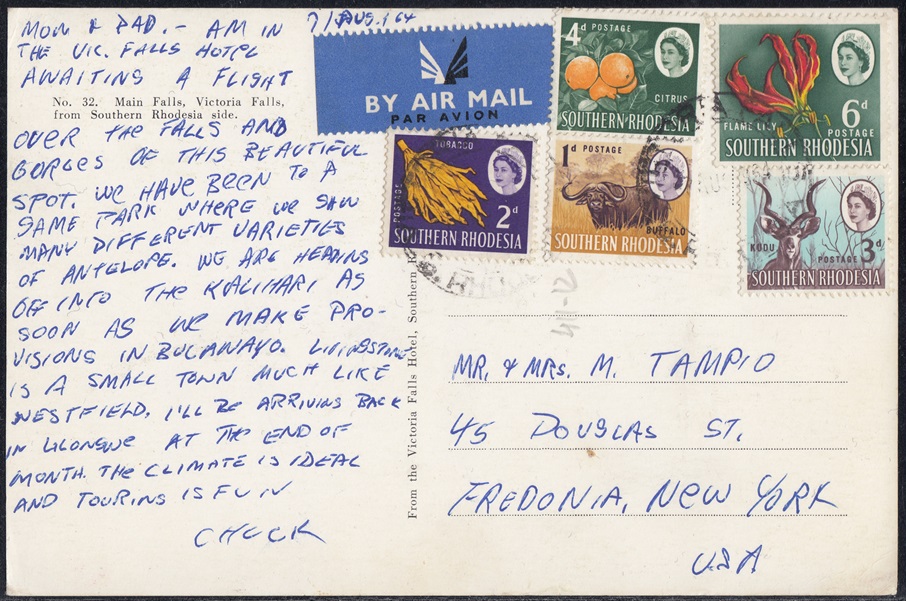 MOM & DAD. - AM IN
7/AUG./64
THE VIC. FALLS HOTEL
AWAITING A FLIGHT
No. 32. Main Falls, Victoria Falls,
from Southern Rhodesia side.
OVER THE FALLS AND
GORGES OF THIS BEAUTIFUL
SPOT. WE HAVE BEEN TO A
GAME PARK WHERE WE SAW
MANY DIFFERENT VARIETIES
OF ANTELOPE. WE ARE HEADING
OFF INTO THE KALIHARI AS
SOON AS WE MAKE PRO-
VISIONS IN BULAWAYO. LIVINGSTONE
IS A SMALL TOWN MUCH LIKE
WESTFIELD. I'LL BE ARRIVING BACK
IN LILONGWE AT THE END OF
MONTH. THE CLIMATE IS IDEAL
AND TOURING IS FUN
CHUCK
BY AIR MAIL
PAR AVION
4d POSTAGE
CITRUS
SOUTHERN RHODESIA
FLAME LILY
6d
POSTAGE
SOUTHERN RHODESIA
TOBACCO
POSTAGE
2d
SOUTHERN RHODESIA
1d POSTAGE
BUFFALO
SOUTHERN RHODESIA
KUDU
POSTAGE 3d
SOUTHERN RHODESIA
From the Victoria Falls Hotel, Southern
MR. & MRS. M. TAMPIO
45 DOUGLAS ST.
FREDONIA, NEW YORK
USA